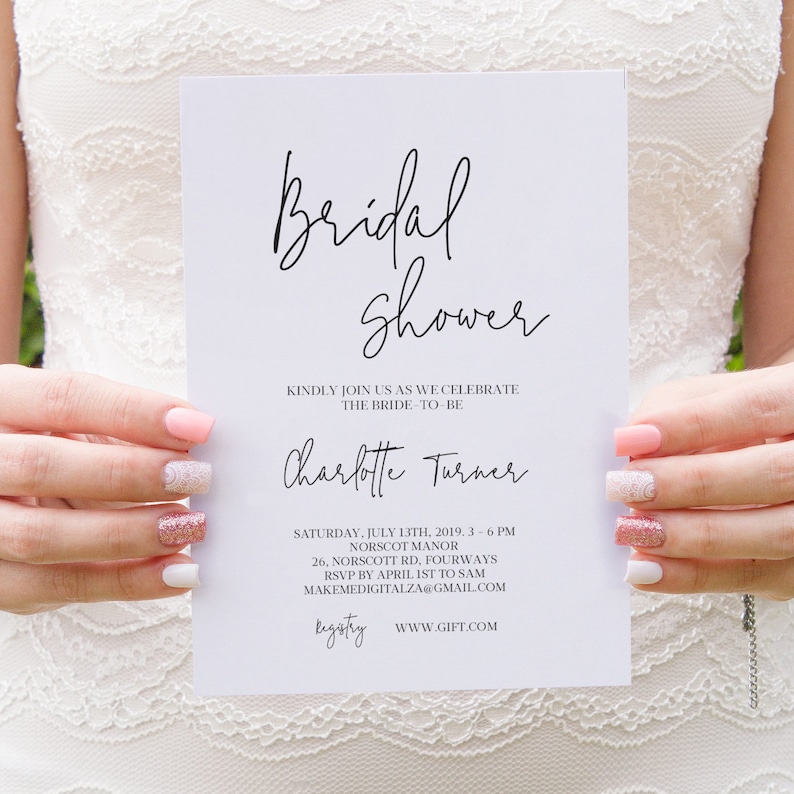 Bridal
Shower
KINDLY JOIN US AS WE CELEBRATE
THE BRIDE-TO-BE
Charlotte Turner
SATURDAY, JULY 13TH, 2019. 3 - 6 PM
NORSCOT MANOR
26, NORSCOTT RD, FOURWAYS
RSVP BY APRIL 1ST TO SAM
MAKEMEDIGITALZA@GMAIL.COM
Registry WWW.GIFT.COM